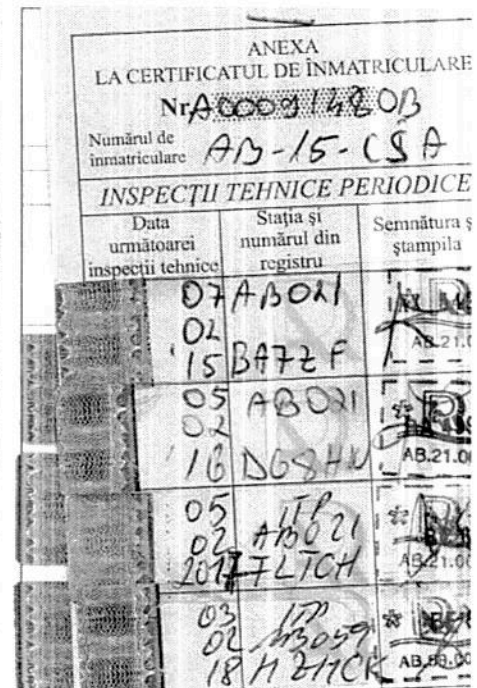 ANEXA
LA CERTIFICATUL DE ÎNMATRICULARE
Nr A00091480B
Numărul de
înmatriculare AB-15-CSA
INSPECȚII TEHNICE PERIODICE
Data
următoarei
inspecții tehnice
Stația și
numărul din
registru
Semnătura ș
ștampila
07 AB021
02
15 BA7ZF
AB.21.0
05 AB021
02
16 DG8HU
AB.21.0
05 ITP
02 AB021
2017 7LTCH
AB.21.00
03 ITP
02 AB059
18 MZHCK